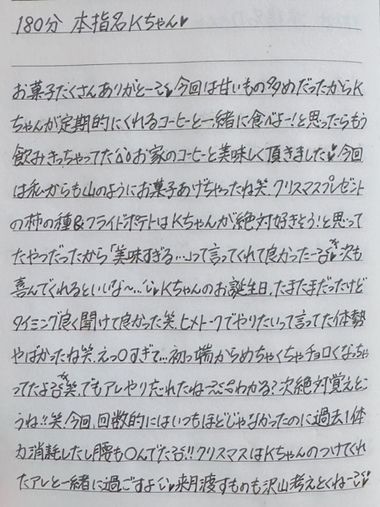 180分 本指名Kちゃん♥
お菓子たくさんありがとー♥今回は甘いもの多めだったからK
ちゃんが定期的にくれるコーヒーと一緒に食べよー!と思ったらもう
飲みきっちゃってたお家のコーヒーと美味しく頂きました♥今回
は私からも山のようにお菓子あげちゃったね笑.クリスマスプレゼント
の柿の種&フライドポテトはKちゃんが絶対好きそう!と思って
たやつだったから「美味すぎる…」って言ってくれて良かったー次も
喜んでくれるといいな〜…Kちゃんのお誕生日、たまたまだったけど
タイミング良く聞けて良かった笑.ヒメトークでやりたいって言ってた体勢
やばかったね笑.えっ〇すぎて…初っ端からめちゃくちゃチョロくなっちゃ
ってたよ笑.でもアレやりたいれたねーわかる?次絶対覚えとこ
うね!!笑!今回、回数的にはいつもほどじゃなかったのに過去1体
力消耗したし腰も〇んでた!!クリスマスはKちゃんのつけてくれ
たアレと一緒に過ごすよ来月渡すものも沢山考えとくねー♥